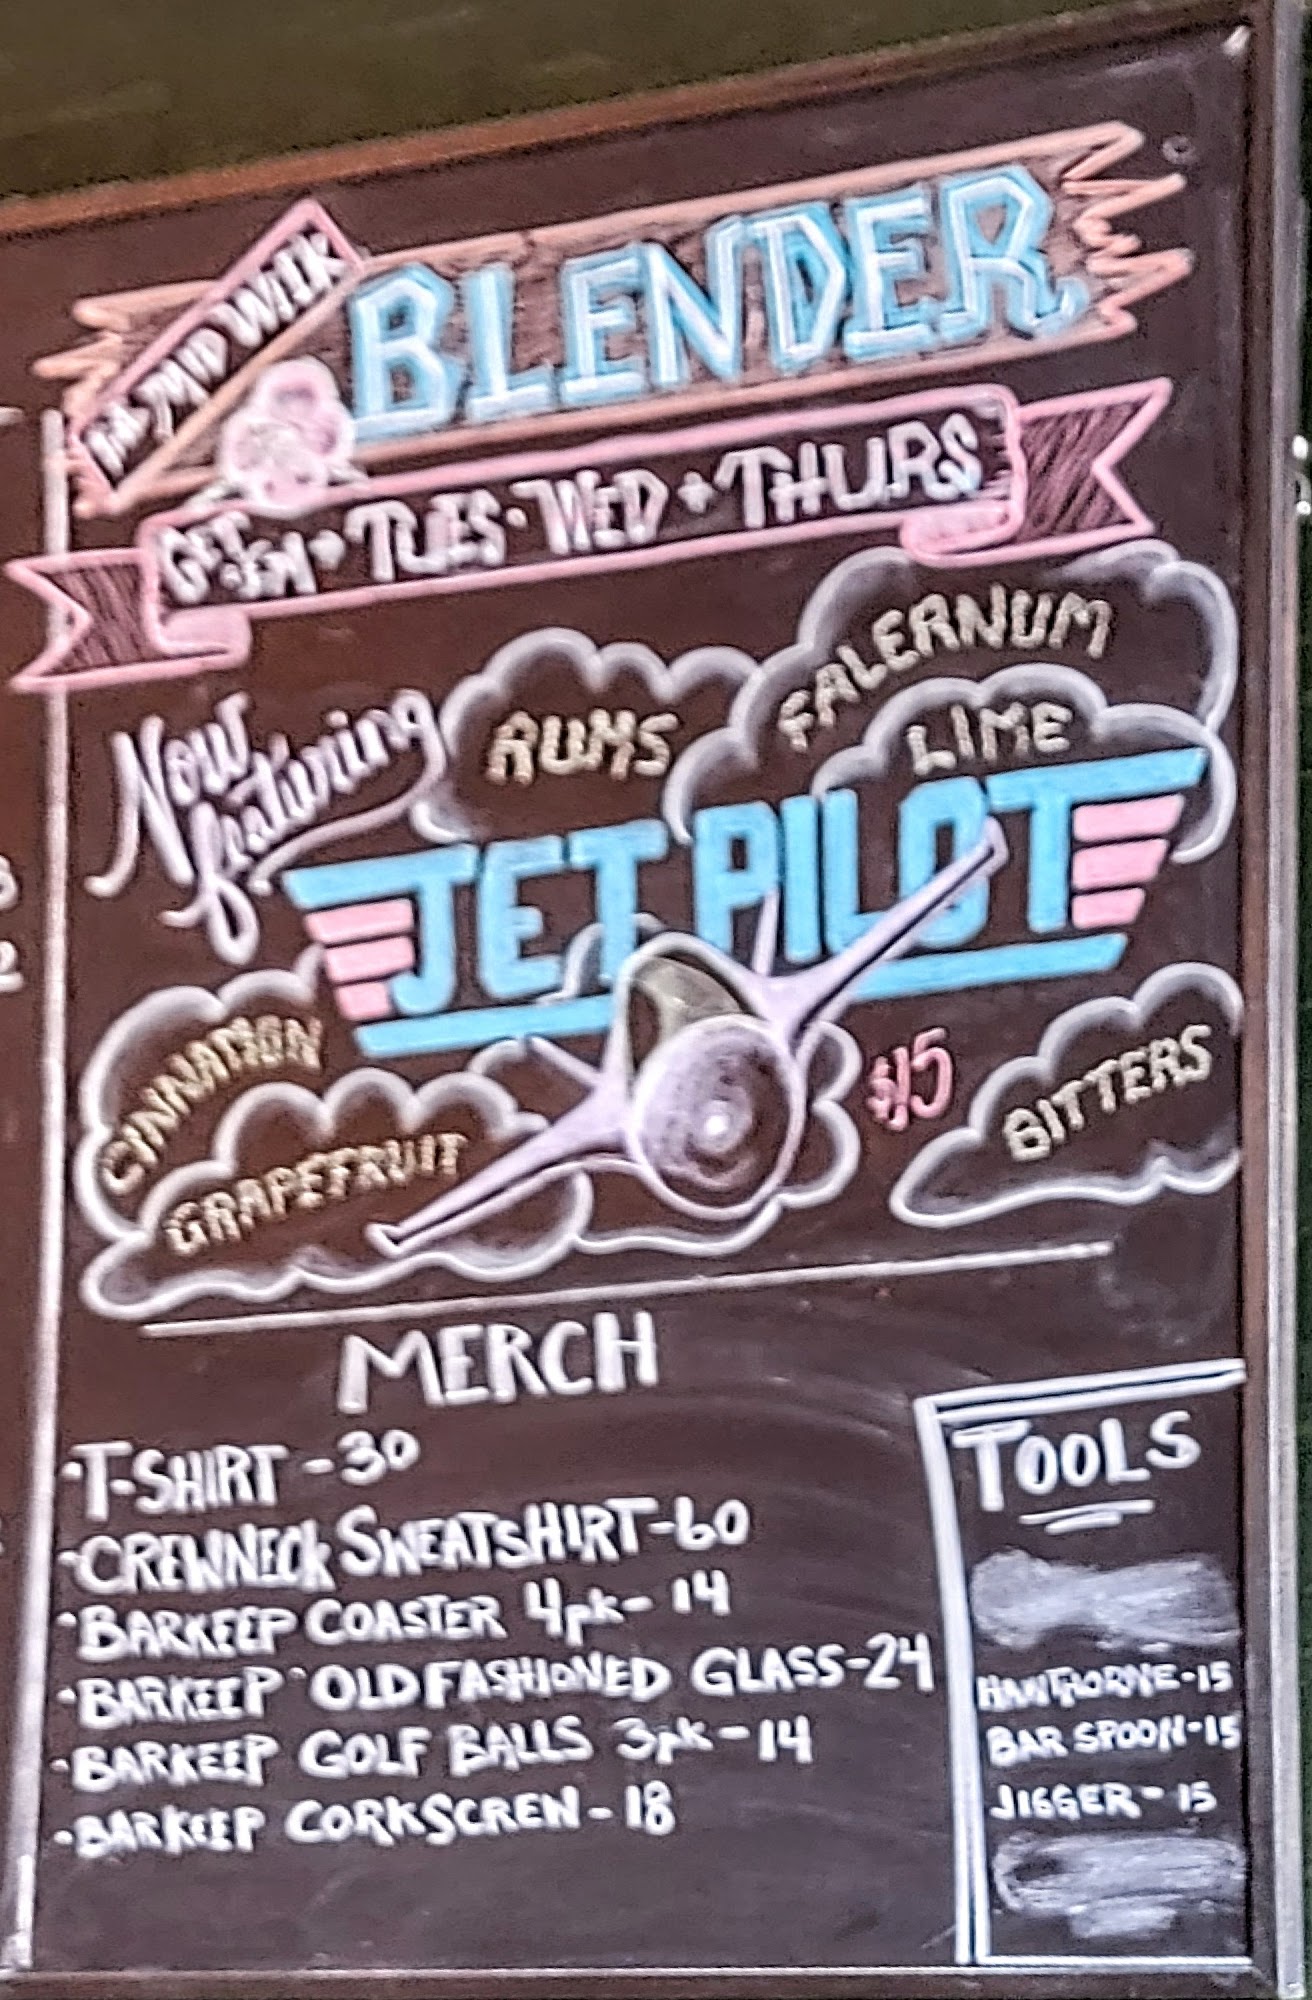 THE MID WEEK
BLENDER
GET IN → TUES · WED + THURS
Now
featuring
RUMS
FALERNUM
LIME
JET PILOT
CINNAMON
GRAPEFRUIT
$15
BITTERS
MERCH
· T-SHIRT - 30
· CREWNECK SWEATSHIRT - 60
· BARKEEP COASTER 4pk - 14
· BARKEEP OLD FASHIONED GLASS - 24
· BARKEEP GOLF BALLS 3pk - 14
· BARKEEP CORKSCREW - 18
TOOLS
HAWTHORNE - 15
BAR SPOON - 15
JIGGER - 15